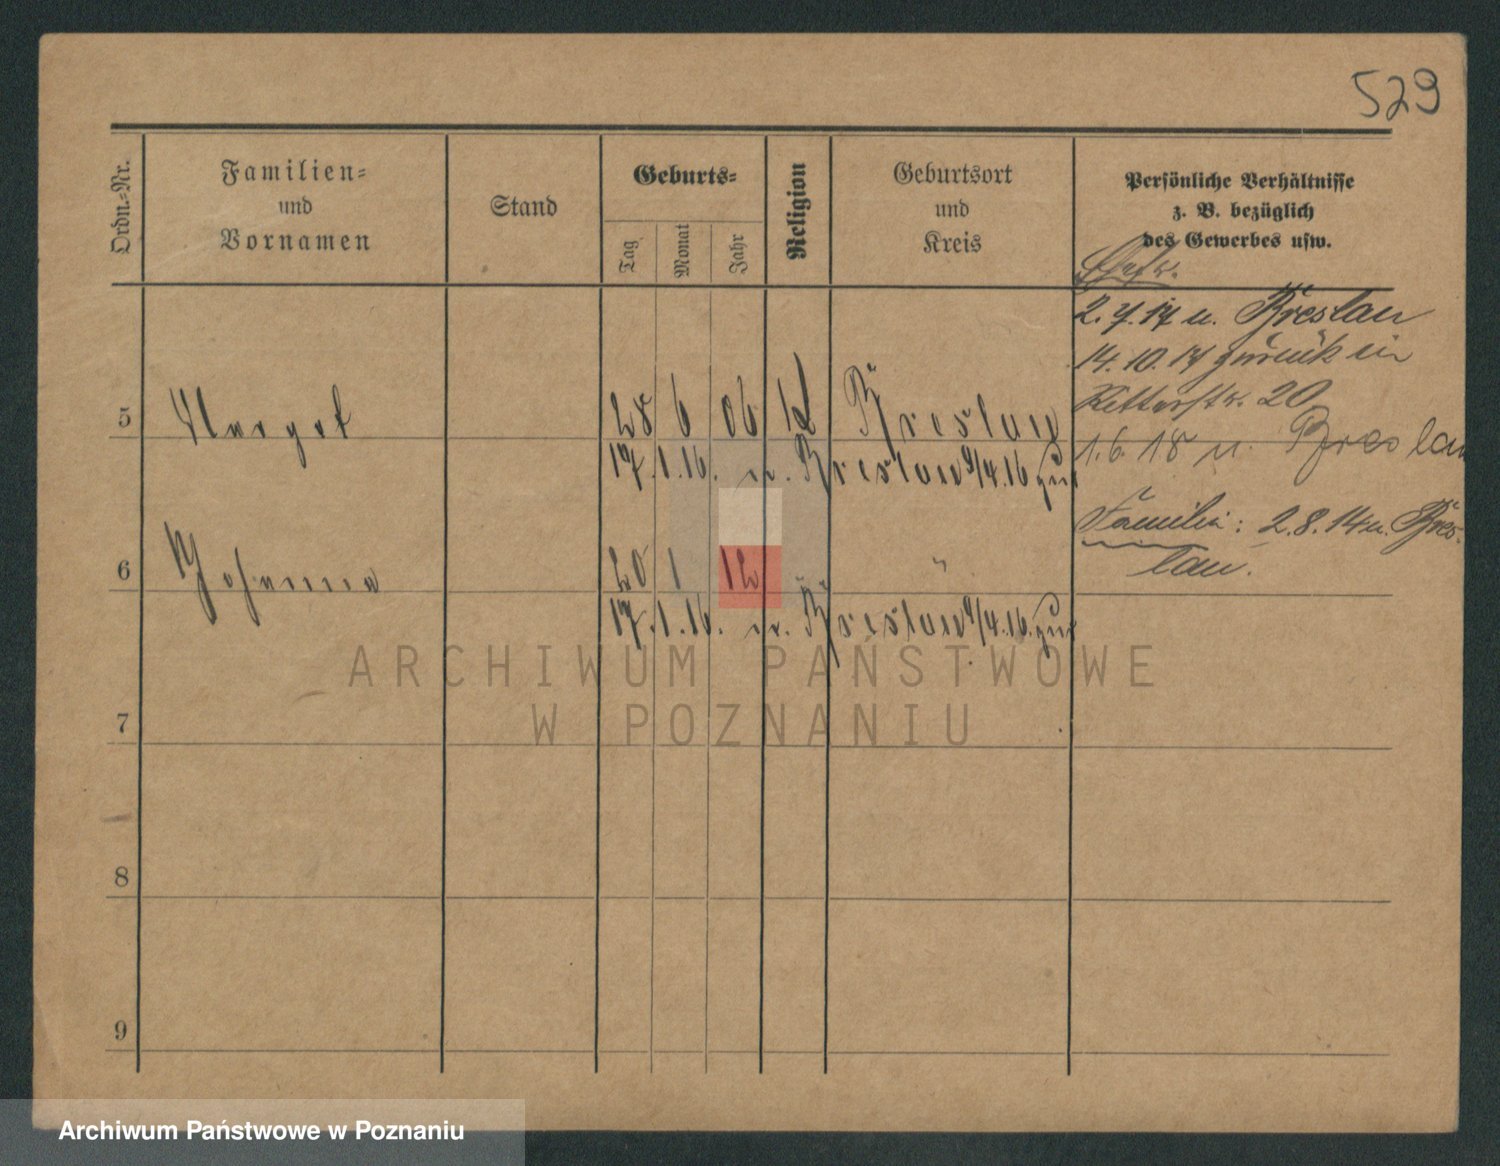 529
Ordn.-Nr.
Familien-
und
Vornamen
Stand
Geburts-
Tag
Monat
Jahr
Religion
Geburtsort
und
Kreis
Persönliche Verhältnisse
z. B. bezüglich
des Gewerbes usw.
2. 7. 17 n. Breslau
14. 10. 17 zurück in
Ritterstr. 20
5 Margot 28 6 06 Breslau
1. 6. 18 n. Breslau
17. 1. 16. n. Breslau 9/4. 16 zur
Familie: 2. 8. 14 n. Bres-
lau.
6 Johanna 20 1 12 "
17. 1. 16. n. Breslau 9/4. 16. zur
ARCHIWUM PAŃSTWOWE
W POZNANIU
7
8
9
Archiwum Państwowe w Poznaniu